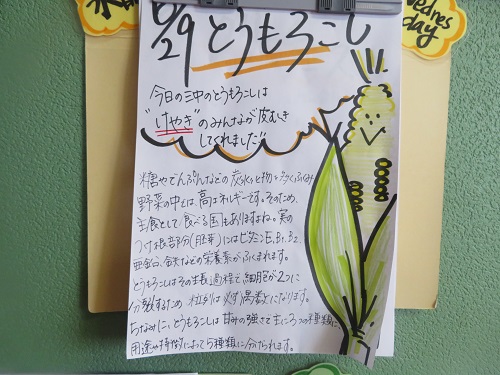 6/29 とうもろこし
Wednes
day
今日の三中のとうもろこしは
"けやき"のみんなが皮むき
してくれました"
糖やでんぷんなどの炭水化物を多くふくみ
野菜の中では、高エネルギーです。そのため、
主食として食べる国もありますよね。実の
つけ根部分(胚芽)にはビタミンE、B1、B2、
亜鉛、鉄などの栄養素がふくまれます。
とうもろこしはその生長過程で、細胞が2つに
分裂するため、粒列は必ず偶数になります。
ちなみに、とうもろこしは甘みの強さで主に3つの種類に、
用途や特徴によって5種類に分けられます。